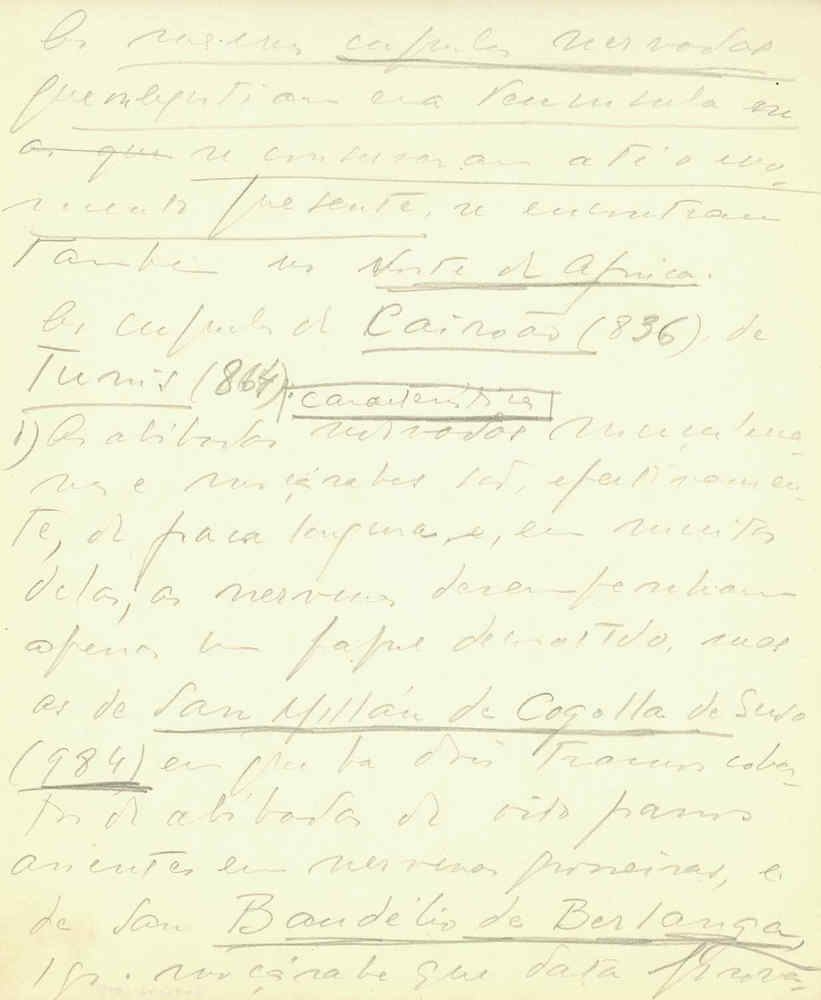 As mesmas cupulas nervadas
que existiam na Peninsula e
as que se conservaram até o mo-
mento presente, se encontram
Tambem no Norte de Africa.
As cupulas de Cairoão (836), de
Tunis (864). caracteristica
1) As abóbadas nervadas muçulma-
nas e moçárabes são, efectivamen-
te, de fraca largura, e, em muitas
delas, as nervuras desempenham
apenas um papel decorativo, mas
as de San Millán de Cogolla de Suso
(984) em que ha dois tramos cober-
tos de abóbadas de oito panos
assentes em nervuras grosseiras, e
de San Baudélio de Berlanga,
igr. moçárabe que data prova-